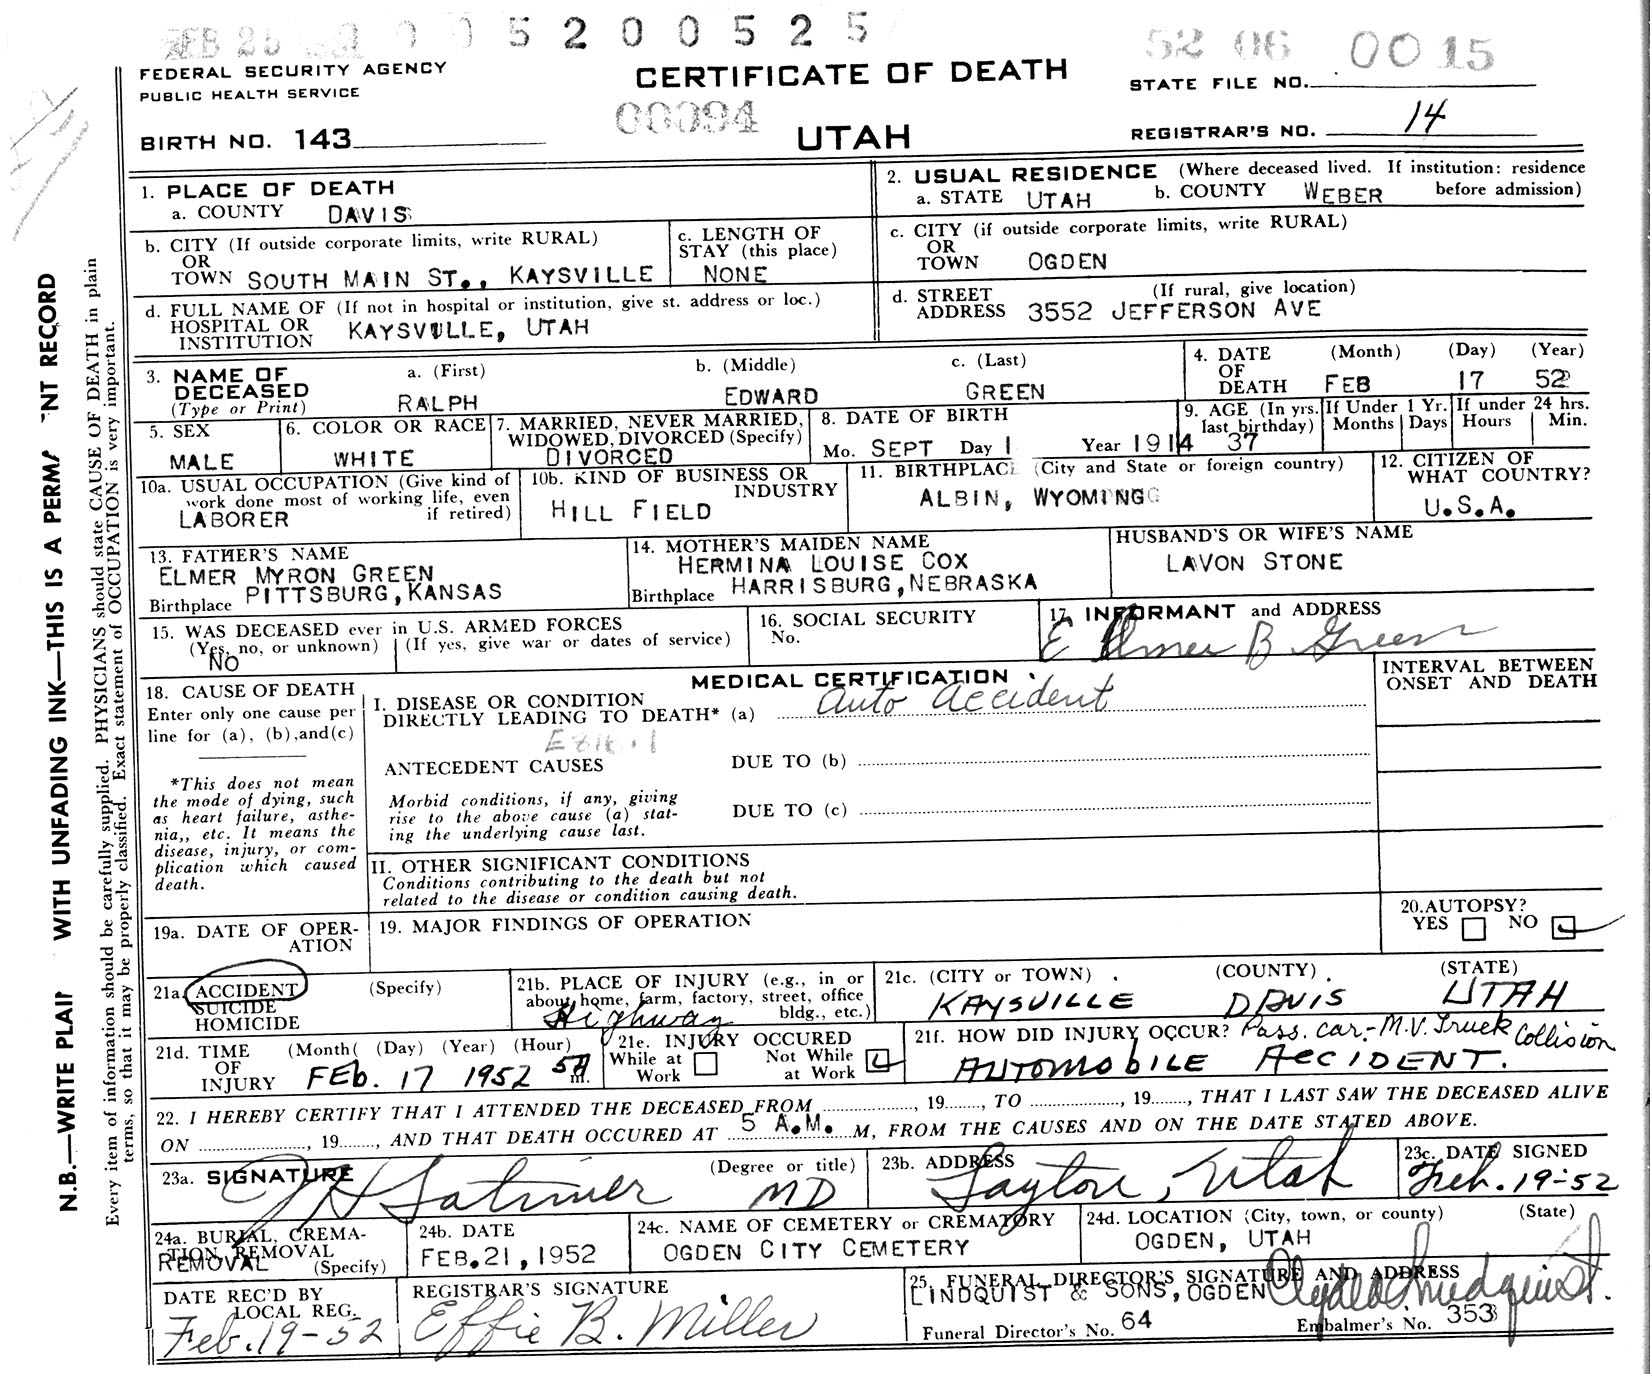 FEB 25 0 0 5 2 0 0 5 2 5
52 06 0015
FEDERAL SECURITY AGENCY
PUBLIC HEALTH SERVICE
CERTIFICATE OF DEATH
STATE FILE NO.
00094
BIRTH NO. 143
UTAH
REGISTRAR'S NO. 14
1. PLACE OF DEATH
a. COUNTY DAVIS
2. USUAL RESIDENCE (Where deceased lived. If institution: residence before admission)
a. STATE UTAH b. COUNTY WEBER
b. CITY (If outside corporate limits, write RURAL)
OR
TOWN SOUTH MAIN ST., KAYSVILLE
c. LENGTH OF
STAY (this place)
NONE
c. CITY (if outside corporate limits, write RURAL)
OR
TOWN OGDEN
d. FULL NAME OF (If not in hospital or institution, give st. address or loc.)
HOSPITAL OR
INSTITUTION KAYSVILLE, UTAH
d. STREET (If rural, give location)
ADDRESS 3552 JEFFERSON AVE
3. NAME OF
DECEASED
(Type or Print)
a. (First)
RALPH
b. (Middle)
EDWARD
c. (Last)
GREEN
4. DATE
OF
DEATH
(Month) (Day) (Year)
FEB 17 52
5. SEX
MALE
6. COLOR OR RACE
WHITE
7. MARRIED, NEVER MARRIED,
WIDOWED, DIVORCED (Specify)
DIVORCED
8. DATE OF BIRTH
Mo. SEPT Day 1 Year 1914
9. AGE (In yrs.
last birthday)
37
If Under 1 Yr.
Months Days
If under 24 hrs.
Hours Min.
10a. USUAL OCCUPATION (Give kind of
work done most of working life, even
if retired)
LABORER
10b. KIND OF BUSINESS OR
INDUSTRY
HILL FIELD
11. BIRTHPLACE (City and State or foreign country)
ALBIN, WYOMING
12. CITIZEN OF
WHAT COUNTRY?
U.S.A.
13. FATHER'S NAME
ELMER MYRON GREEN
Birthplace PITTSBURG, KANSAS
14. MOTHER'S MAIDEN NAME
HERMINA LOUISE COX
Birthplace HARRISBURG, NEBRASKA
HUSBAND'S OR WIFE'S NAME
LAVON STONE
15. WAS DECEASED ever in U.S. ARMED FORCES
(Yes, no, or unknown) (If yes, give war or dates of service)
NO
16. SOCIAL SECURITY
No.
17. INFORMANT and ADDRESS
E Elmer B Green
18. CAUSE OF DEATH
Enter only one cause per
line for (a), (b), and (c)
*This does not mean
the mode of dying, such
as heart failure, asthe-
nia,, etc. It means the
disease, injury, or com-
plication which caused
death.
MEDICAL CERTIFICATION
I. DISEASE OR CONDITION
DIRECTLY LEADING TO DEATH* (a) Auto Accident
E816.1
ANTECEDENT CAUSES DUE TO (b)
Morbid conditions, if any, giving
rise to the above cause (a) stat-
ing the underlying cause last.
DUE TO (c)
II. OTHER SIGNIFICANT CONDITIONS
Conditions contributing to the death but not
related to the disease or condition causing death.
INTERVAL BETWEEN
ONSET AND DEATH
19a. DATE OF OPER-
ATION
19. MAJOR FINDINGS OF OPERATION
20. AUTOPSY?
YES NO
21a. ACCIDENT (Specify)
SUICIDE
HOMICIDE
21b. PLACE OF INJURY (e.g., in or
about home, farm, factory, street, office
bldg., etc.)
Highway
21c. (CITY or TOWN) (COUNTY) (STATE)
KAYSVILLE DAVIS UTAH
21d. TIME
OF
INJURY
(Month( (Day) (Year) (Hour)
FEB. 17 1952 5A m.
21e. INJURY OCCURED
While at Work
Not While at Work
21f. HOW DID INJURY OCCUR? Pass. car - M.V. Truck Collision
AUTOMOBILE ACCIDENT.
22. I HEREBY CERTIFY THAT I ATTENDED THE DECEASED FROM , 19 , TO , 19 , THAT I LAST SAW THE DECEASED ALIVE
ON , 19 , AND THAT DEATH OCCURED AT 5 A.M. M, FROM THE CAUSES AND ON THE DATE STATED ABOVE.
23a. SIGNATURE (Degree or title)
MD
23b. ADDRESS
Layton, Utah
23c. DATE SIGNED
Feb. 19-52
24a. BURIAL, CREMA-
TION, REMOVAL
(Specify)
REMOVAL
24b. DATE
FEB. 21, 1952
24c. NAME OF CEMETERY or CREMATORY
OGDEN CITY CEMETERY
24d. LOCATION (City, town, or county) (State)
OGDEN, UTAH
DATE REC'D BY
LOCAL REG.
Feb. 19-52
REGISTRAR'S SIGNATURE
Effie B. Miller
25. FUNERAL DIRECTOR'S SIGNATURE AND ADDRESS
LINDQUIST & SONS, OGDEN
Funeral Director's No. 64
Embalmer's No. 353
N.B.—WRITE PLAI WITH UNFADING INK—THIS IS A PERMA NT RECORD
Every item of information should be carefully supplied. PHYSICIANS should state CAUSE OF DEATH in plain
terms, so that it may be properly classified. Exact statement of OCCUPATION is very important.